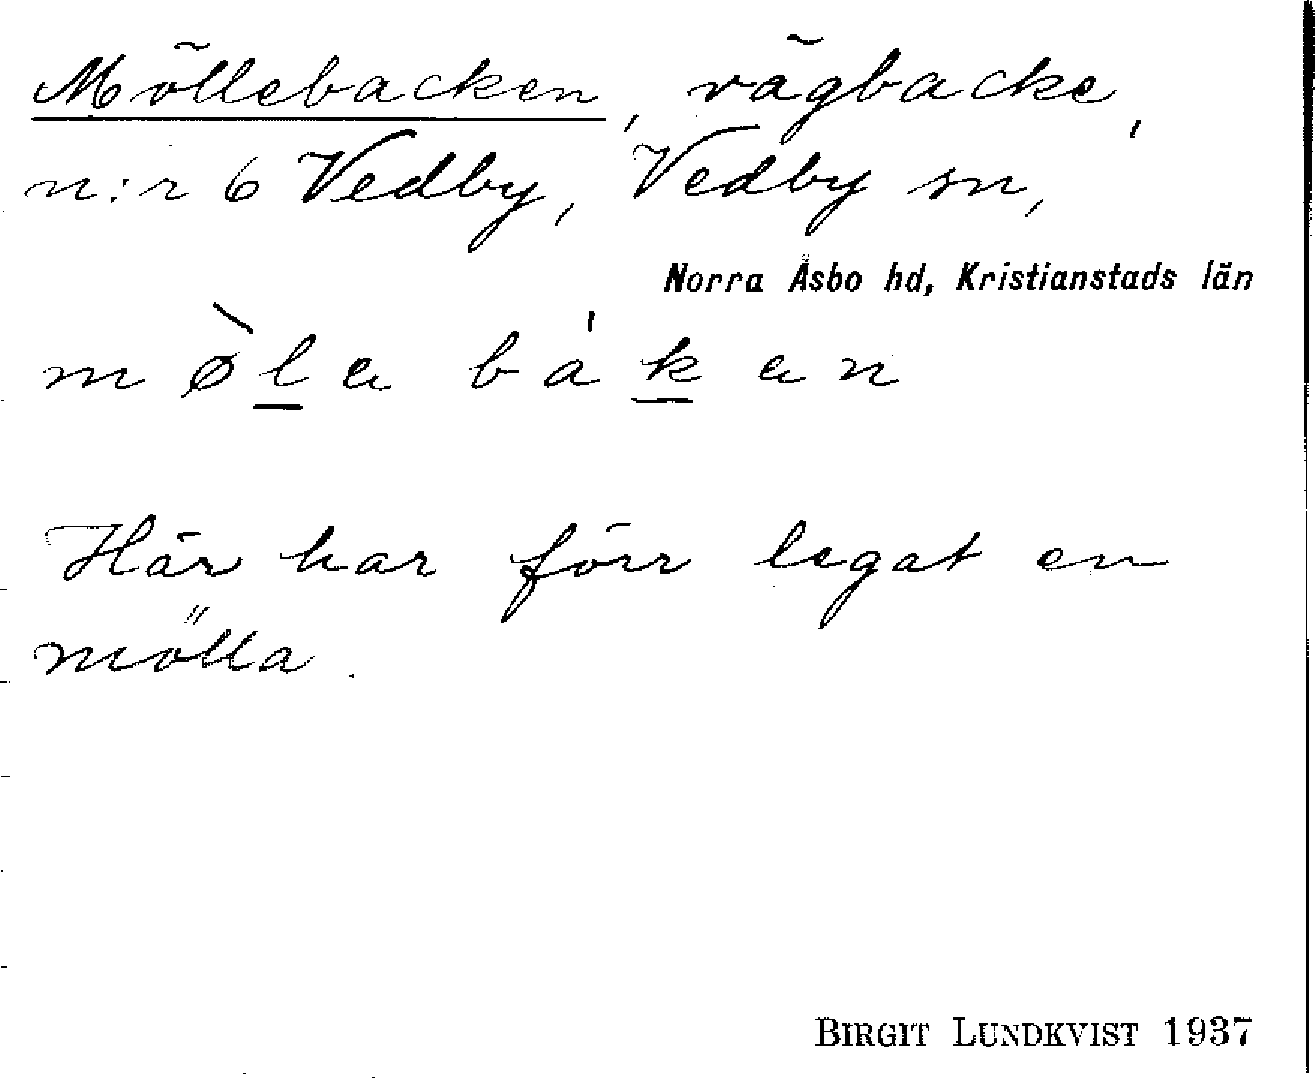 Möllebacken, vägbacke,
n:r 6 Vedby, Vedby sn,
Norra Åsbo hd, Kristianstads län
mø̀la bákan
Här har förr legat en
mölla.
BIRGIT LUNDKVIST 1937